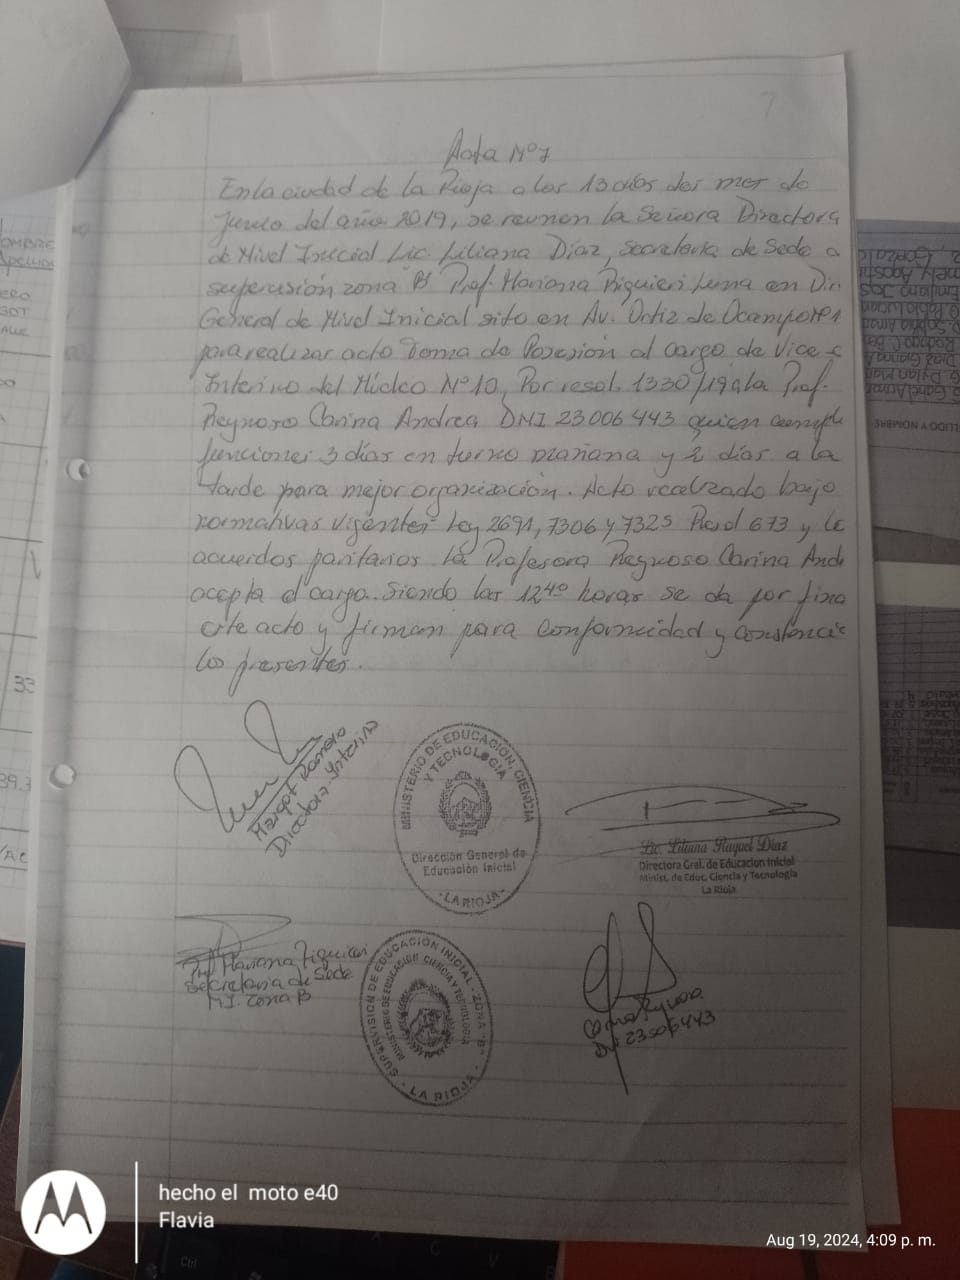 7
Acta Nº7
En la ciudad de la Rioja a los 13 días del mes de
Junio del año 2019, se reunen la Señora Directora
de Nivel Inicial Lic. Liliana Díaz, Secretaria de Sede
supervisión zona B Prof. Mariana Riquieri Luna en Dir.
General de Nivel Inicial sito en Av. Ortiz de Ocampo
para realizar acto Toma de Posesión al cargo de Vice
Interino del Núcleo Nº 10, Por resol. 1330/19 a la Prof.
Reynoso Carina Andrea DNI 23006443 quien cumple
funciones 3 días en turno mañana y 2 días a la
tarde para mejor organización. Acto realizado bajo
normativas vigentes Ley 2691, 7306 y 7325 Resol 673 y
acuerdos paritarios la Profesora Reynoso Carina And
acepta el cargo. Siendo las 12 40 horas se da por fina
este acto y firman para conformidad y constancia
los presentes.
Margot Romero
Directora Interina
MINISTERIO DE EDUCACIÓN, CIENCIA
Y TECNOLOGIA
Dirección General de
Educación Inicial
- LA RIOJA -
Lic. Liliana Raquel Díaz
Directora Gral. de Educacion Inicial
Minist. de Educ. Ciencia y Tecnología
La Rioja
Prof Mariana Riquieri
Secretaria de Sede
N.I. Zona B
SUPERVISIÓN DE EDUCACIÓN INICIAL - ZONA "B"
MINISTERIO DE EDUCACIÓN CIENCIA Y TECNOLOGIA
- LA RIOJA -
23006443
hecho el moto e40
Flavia
Aug 19, 2024, 4:09 p. m.